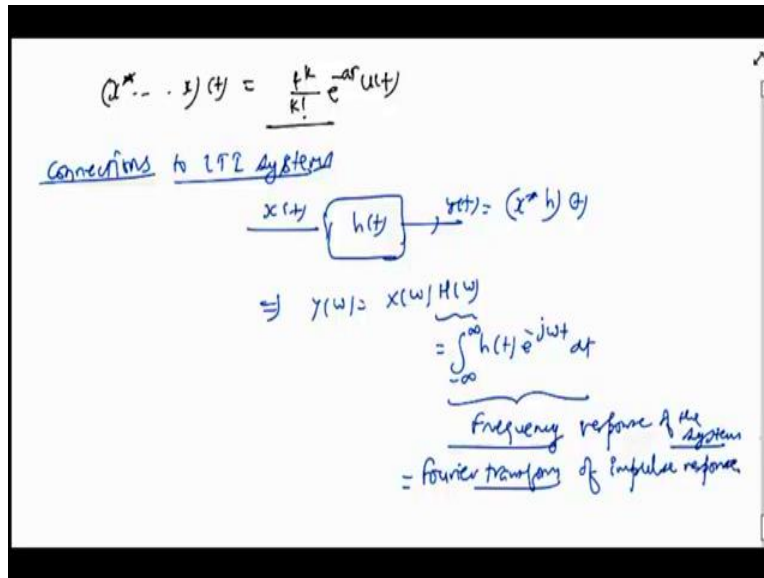 (x* - - . . x)(t) = t^k/k! e^-at u(t)
Connections to LTI systems
x(t) h(t) y(t) = (x* h)(t)
⇒ Y(w) = X(w) H(w)
= ∫_{-∞}^{∞} h(t) e^{-jwt} dt
Frequency response of the system
= Fourier transform of impulse response